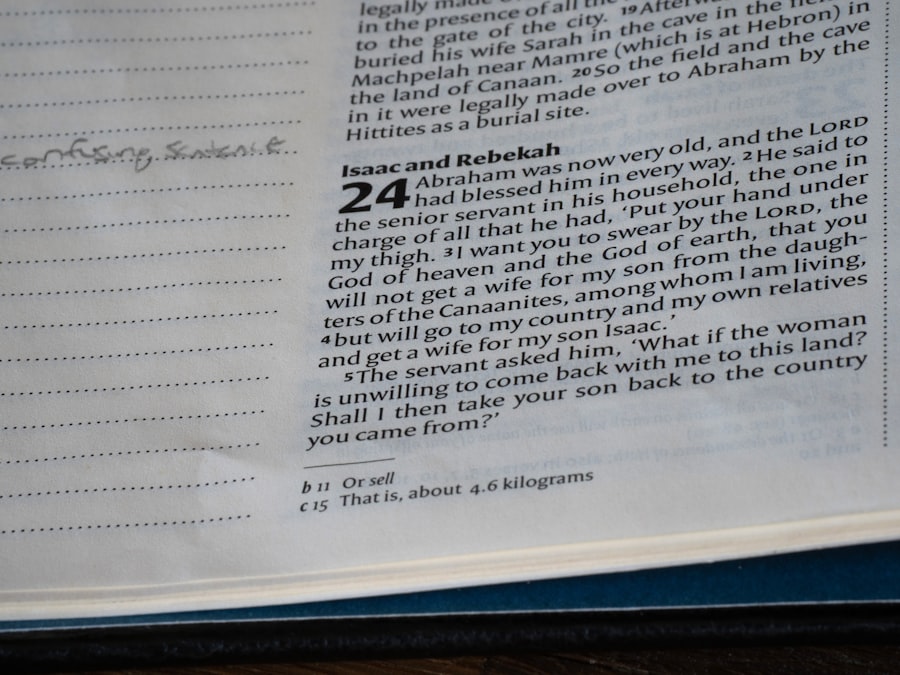 legally made
in the presence of all the
to the gate of the city. 19 Afterwa
buried his wife Sarah in the cave in the fiel
Machpelah near Mamre (which is at Hebron) in
the land of Canaan. 20 So the field and the cave
in it were legally made over to Abraham by the
Hittites as a burial site.
confusing sentence
Isaac and Rebekah
24 Abraham was now very old, and the LORD
had blessed him in every way. 2 He said to
the senior servant in his household, the one in
charge of all that he had, ‘Put your hand under
my thigh. 3 I want you to swear by the LORD, the
God of heaven and the God of earth, that you
will not get a wife for my son from the daugh-
ters of the Canaanites, among whom I am living,
4 but will go to my country and my own relatives
and get a wife for my son Isaac.’
5 The servant asked him, ‘What if the woman
is unwilling to come back with me to this land?
Shall I then take your son back to the country
you came from?’
b 11 Or sell
c 15 That is, about 4.6 kilograms